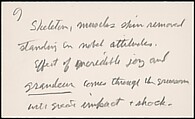 9)
Skeleton, muscles skin removed
standing in nobel attitudes.
Effect of incredible joy and
grandeur comes through the gruesome
with great impact & shock.